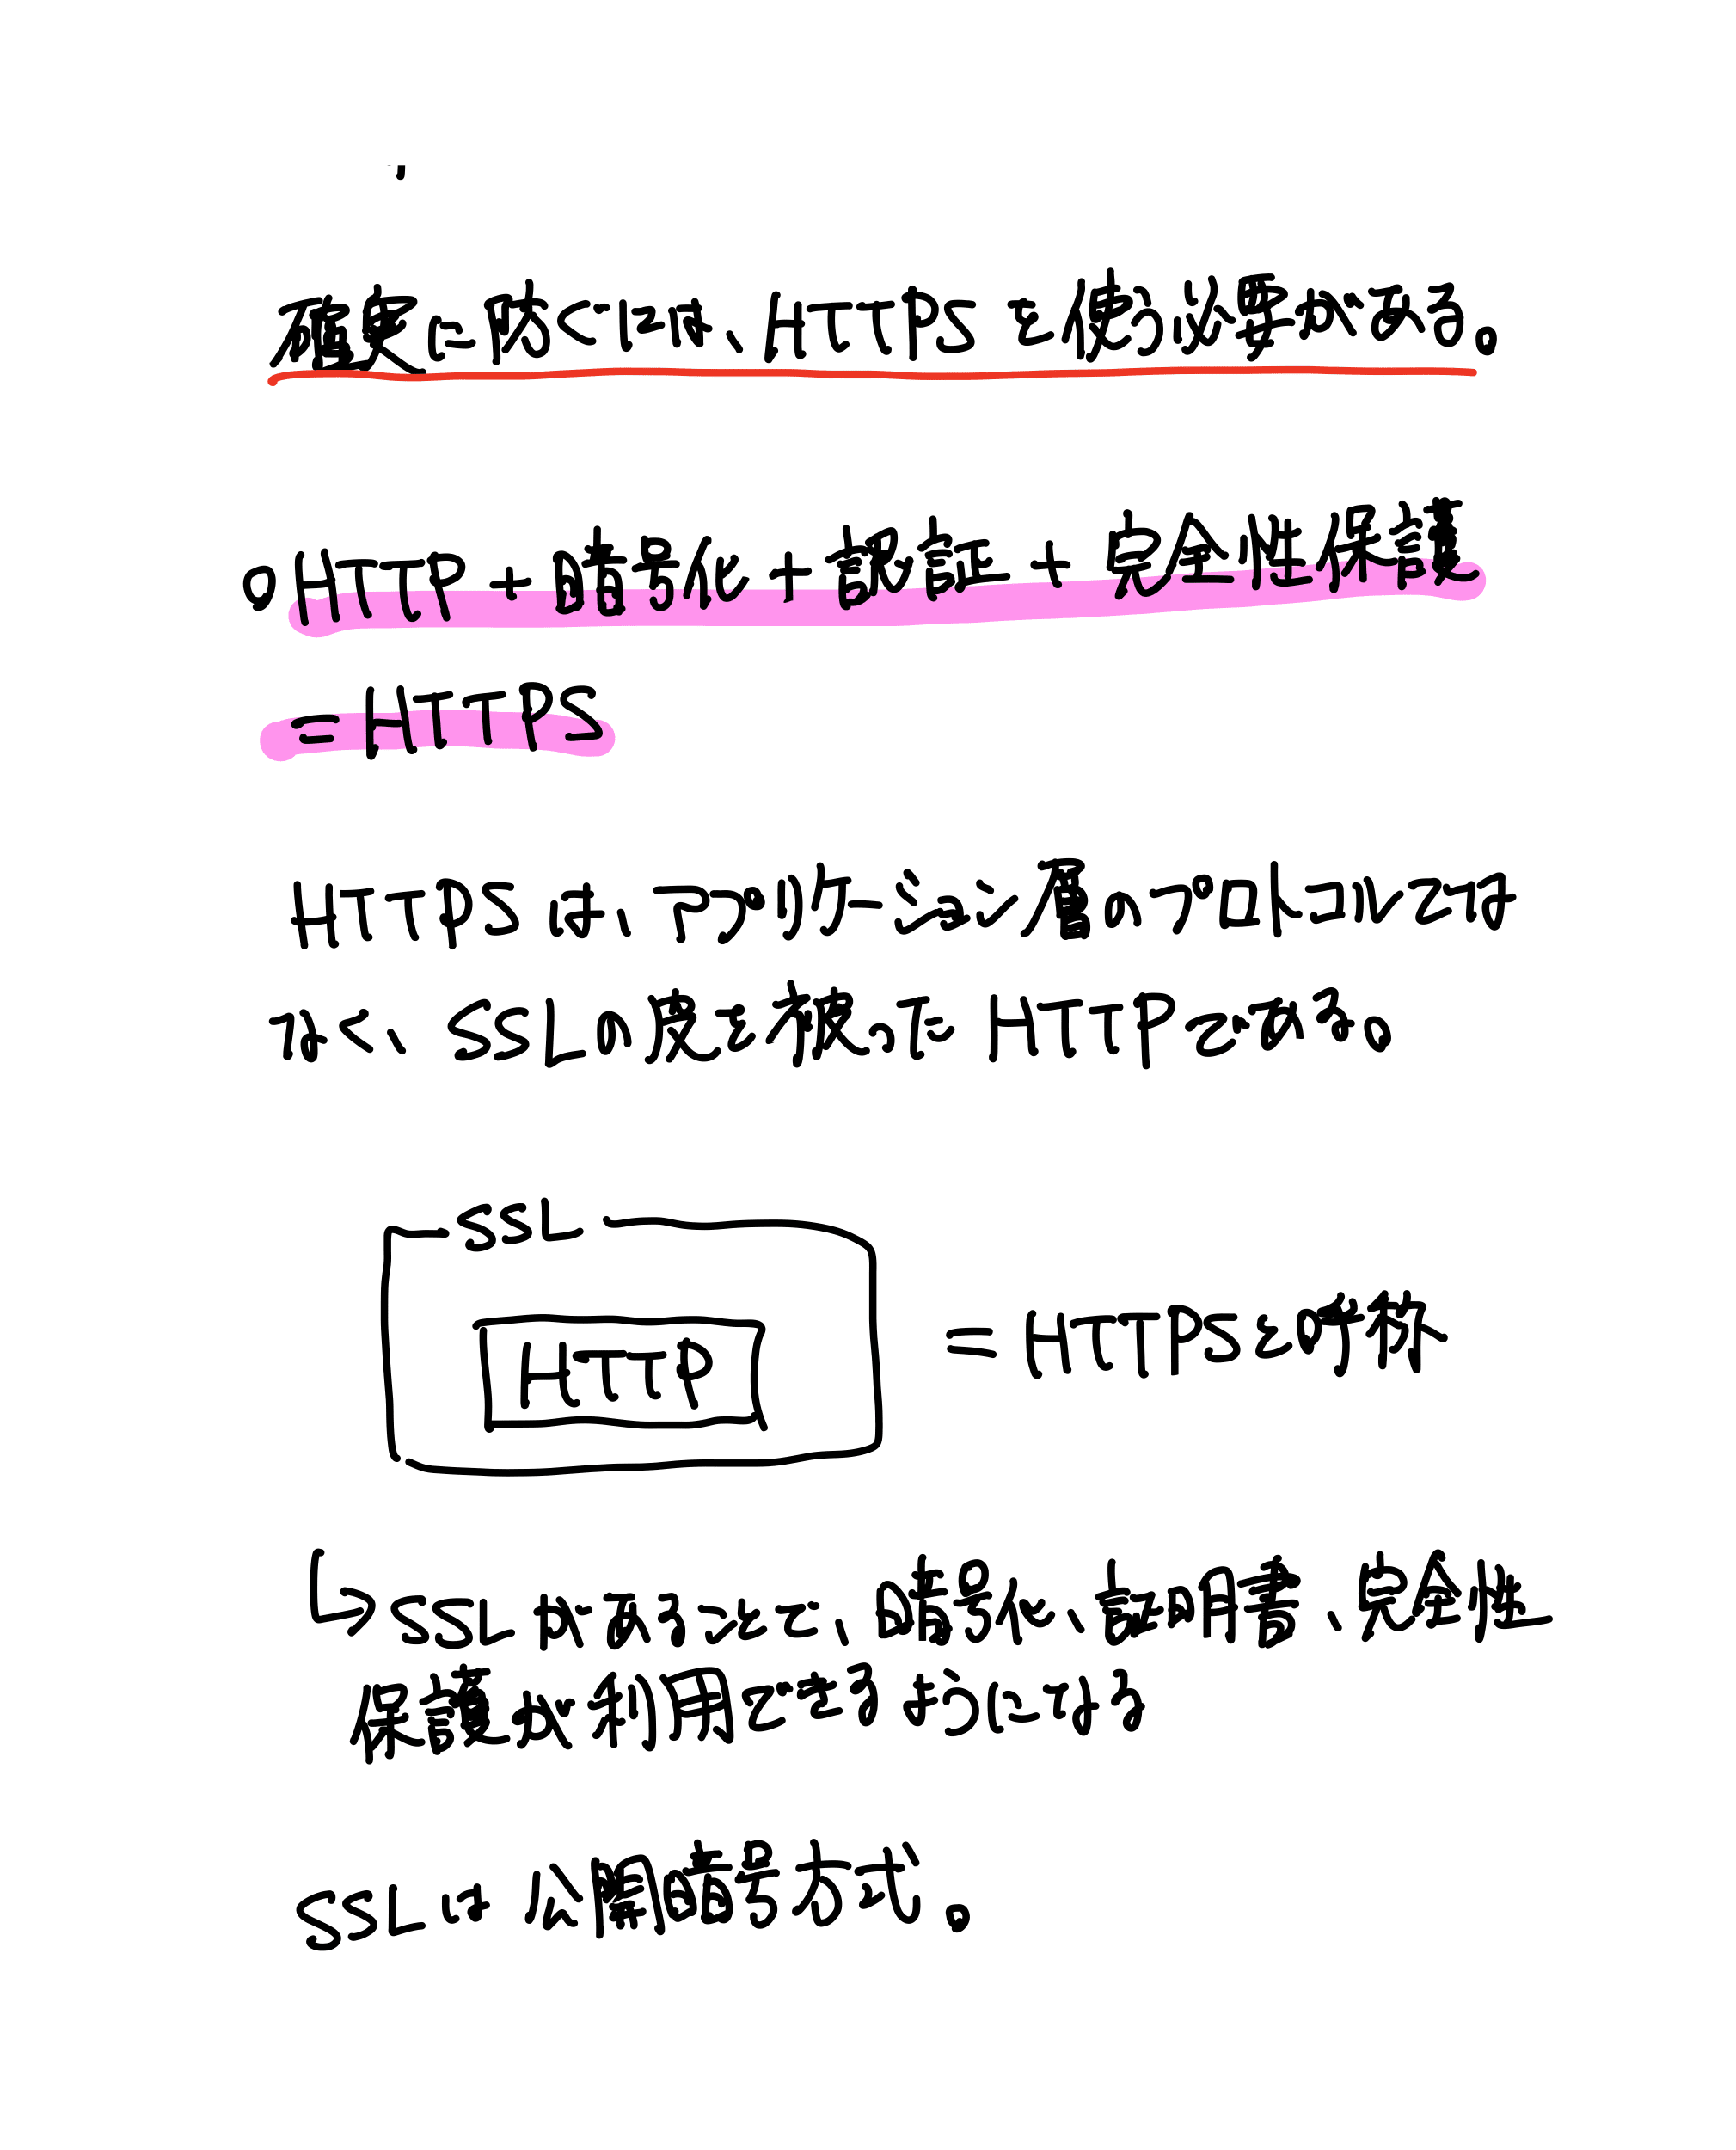 確実に防ぐには、HTTPSを使う必要がある。
○HTTP+暗号化+認証+安全性保護
=HTTPS
HTTPSは、アプリケーション層のプロトコルでは
なく、SSLの殻を被ったHTTPである。
SSL
HTTP
=HTTPSと呼称
↳SSLがあることで、暗号化、証明書、安全性
保護が利用できるようになる
SSLは公開鍵暗号方式。